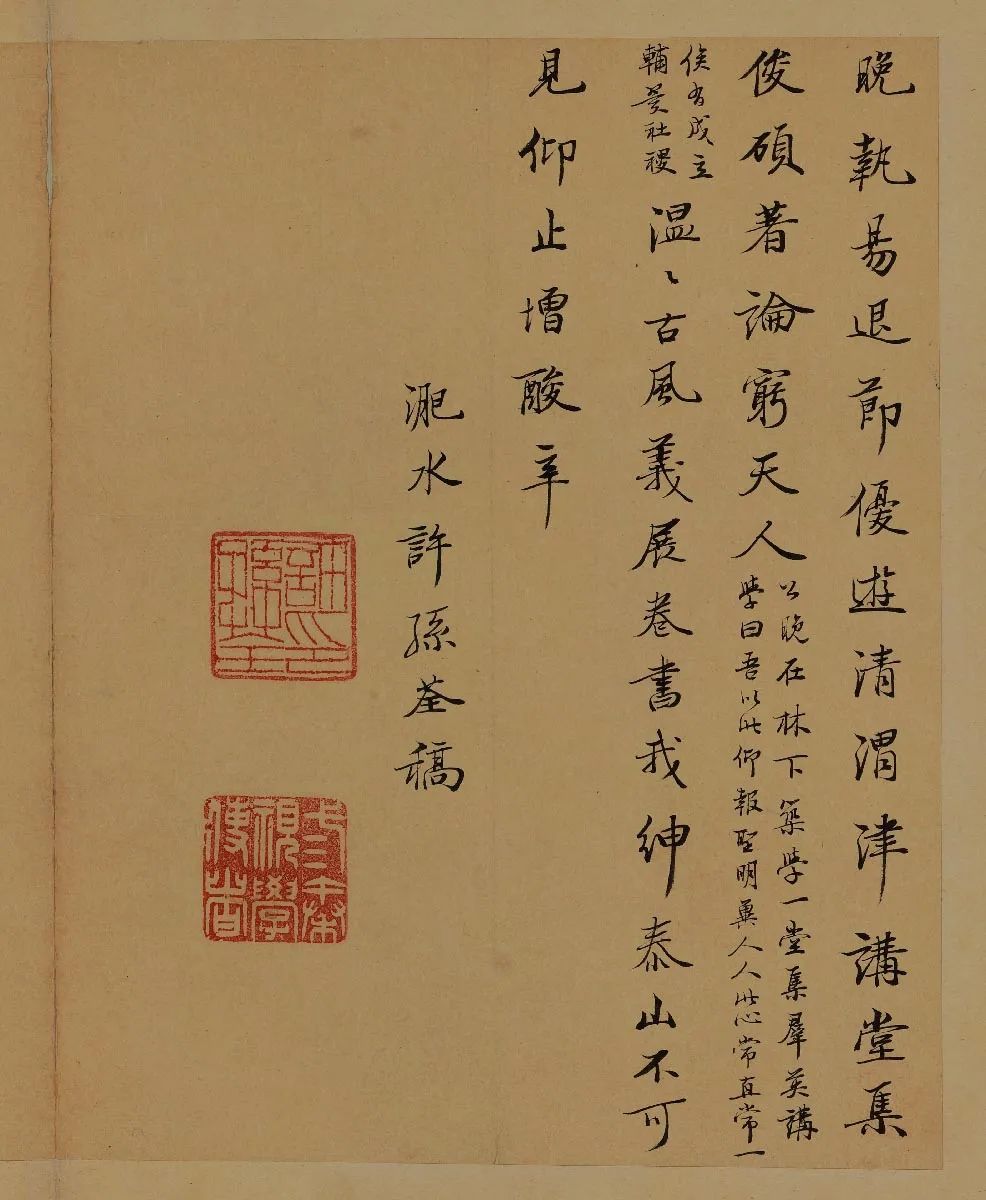 晚執易退節優遊清渭津講堂集
俊碩著論窮天人
公晚在林下築學一堂集羣英講
學曰吾以此仰報聖明冀人人此心常直常一
俟有成立
輔翼社稷
溫〻古風義展卷書我紳泰山不可
見仰止增酸辛
淝水許孫荃稿
三秦
視學
使者